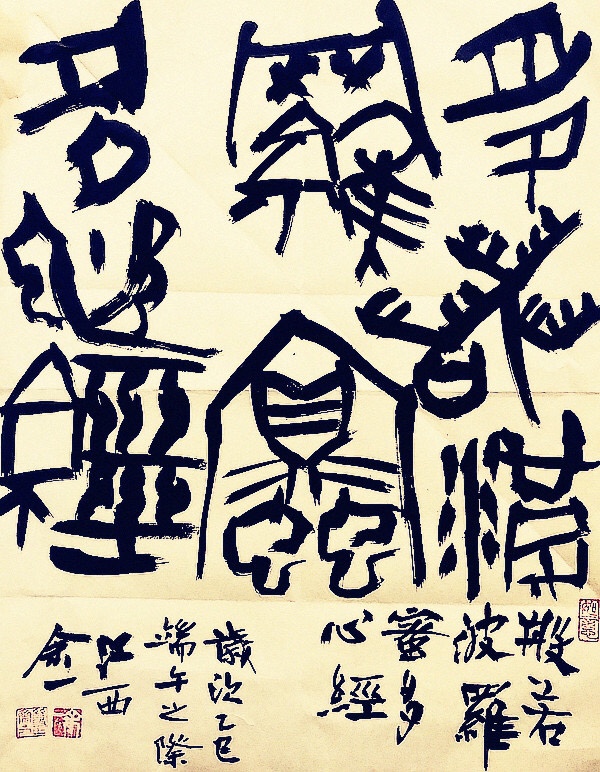 般若波
羅蜜
多心經
般若
波羅
蜜多
心經
歲次乙巳
端午之際
江西